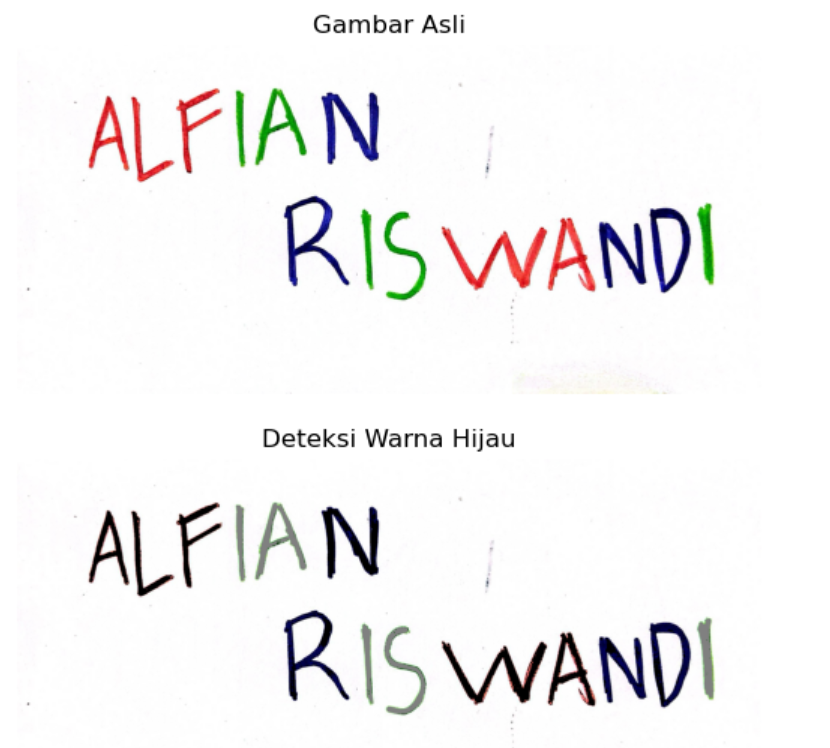 Gambar Asli
ALFIAN
RISWANDI
Deteksi Warna Hijau
ALFIAN
RISWANDI